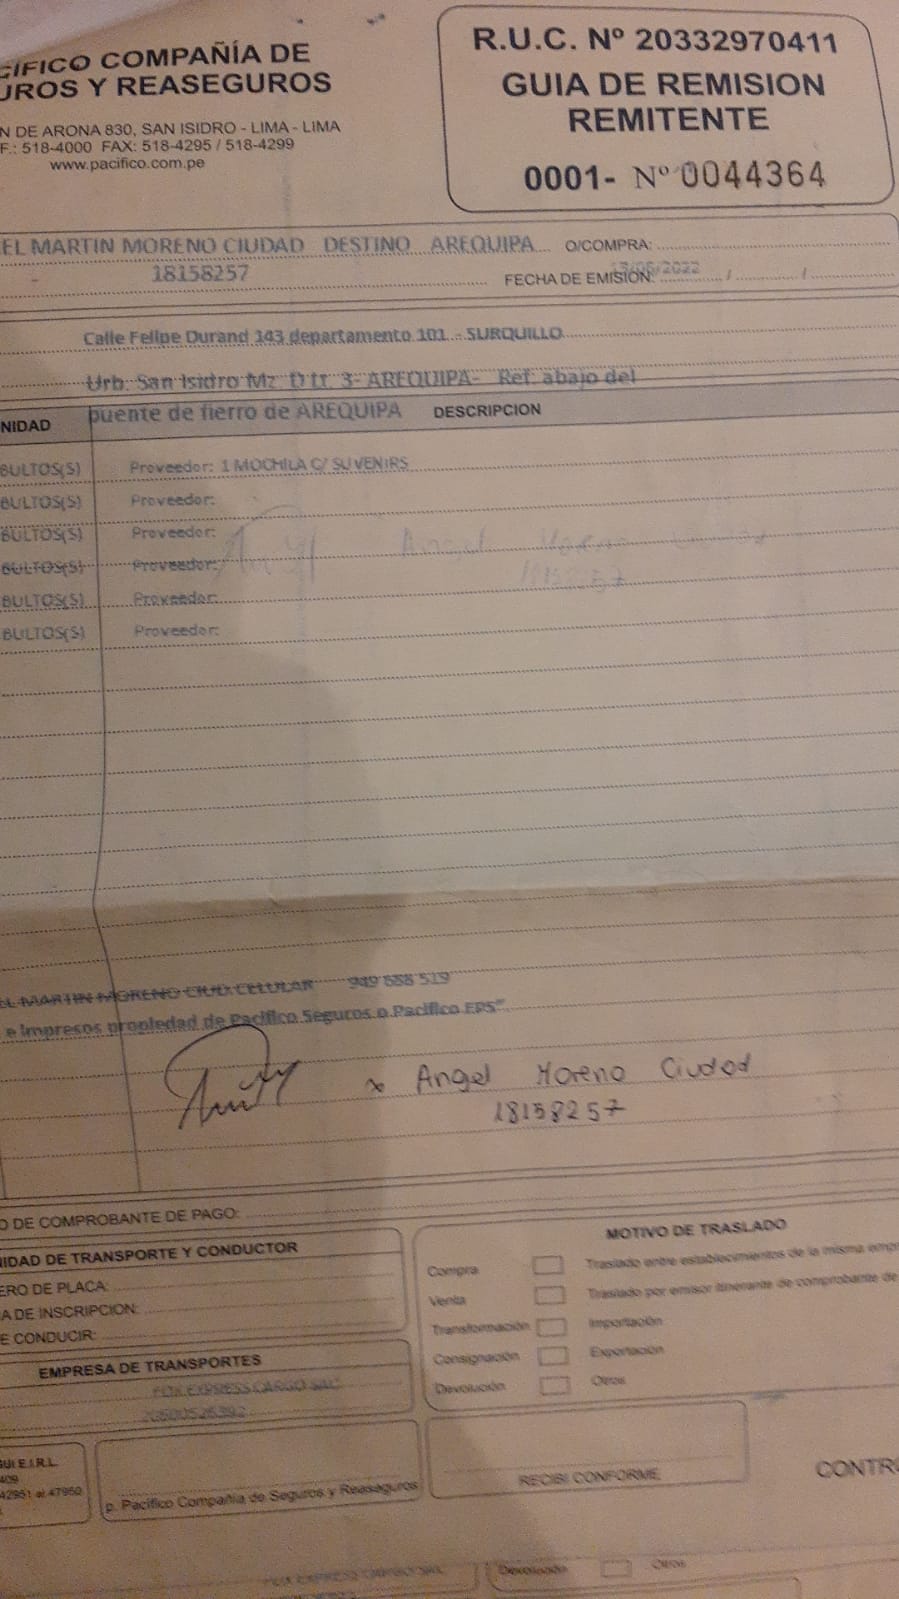 CÍFICO COMPAÑÍA DE
UROS Y REASEGUROS
N DE ARONA 830, SAN ISIDRO - LIMA - LIMA
F.: 518-4000 FAX: 518-4295 / 518-4299
www.pacifico.com.pe
R.U.C. Nº 20332970411
GUIA DE REMISION
REMITENTE
0001- Nº 0044364
EL MARTIN MORENO CIUDAD DESTINO AREQUIPA O/COMPRA:
18158257
FECHA DE EMISIÓN: /06/2022
Calle Felipe Durand 143 departamento 101 - SURQUILLO
Urb. San Isidro Mz D Lt. 3- AREQUIPA- Ref. abajo del
puente de fierro de AREQUIPA
NIDAD DESCRIPCION
BULTOS(S) Proveedor: 1 MOCHILA C/ SUVENIRS
BULTOS(S) Proveedor:
BULTOS(S) Proveedor:
BULTOS(S) Proveedor:
BULTOS(S) Proveedor:
BULTOS(S) Proveedor:
EL MARTIN MORENO CIUD. CELULAR 949 888 519
e impresos propiedad de Pacifico Seguros o Pacifico EPS"
x Angel Moreno Ciudad
18158257
O DE COMPROBANTE DE PAGO:
NIDAD DE TRANSPORTE Y CONDUCTOR
ERO DE PLACA:
A DE INSCRIPCION:
E CONDUCIR:
EMPRESA DE TRANSPORTES
FOX EXPRESS CARGO SAC
MOTIVO DE TRASLADO
Compra
Venta
Transformación
Consignación
Devolución
Traslado entre establecimientos de la misma emp
Traslado por emisor itinerante de comprobante de
Importación
Exportación
Otros
GUI E.I.R.L.
409
42951 al 47950
p. Pacífico Compañía de Seguros y Reaseguros
RECIBI CONFORME
CONTR
Devolución
Otros